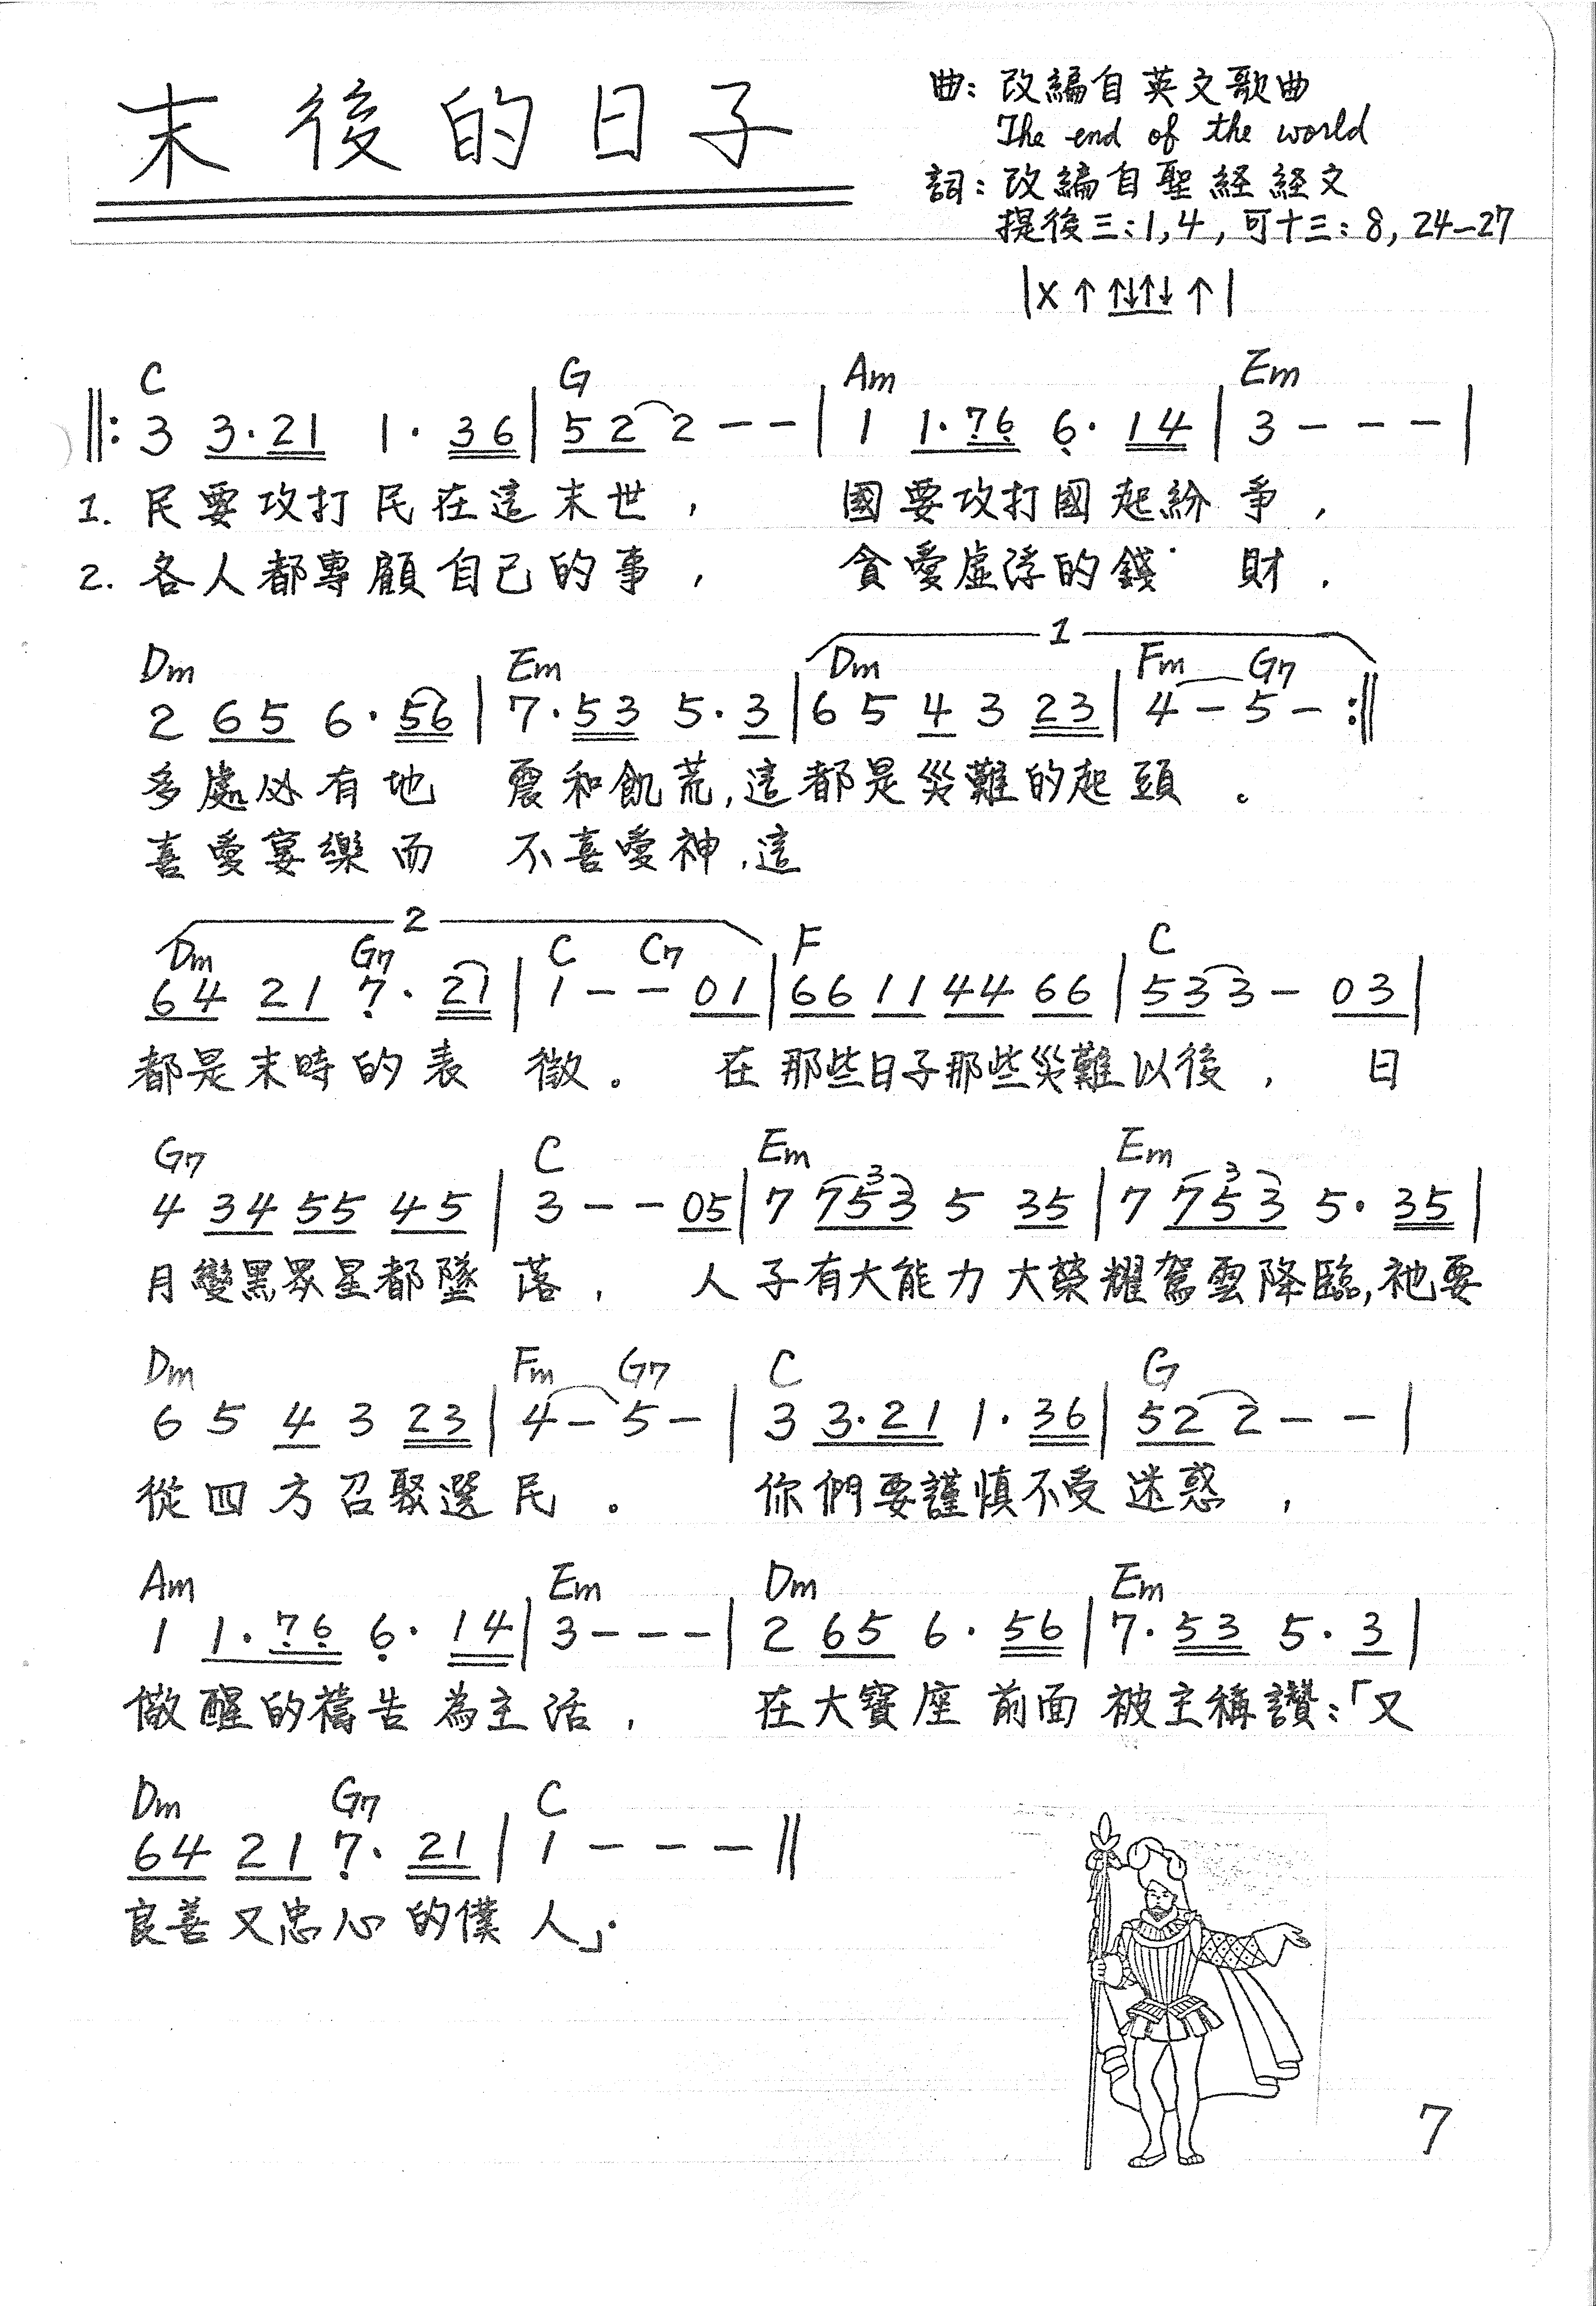 末後的日子
曲：改編自英文歌曲
The end of the world
詞：改編自聖経経文
提後三：1,4，可十三：8，24–27
|X ↑ ↑↓↑↓ ↑|
C G Am Em
‖: 3 3·21 1·36 | 52 2 – – | 1 1·76 6·14 | 3 – – – |
1. 民要攻打民在這末世，國要攻打國起紛爭，
2. 各人都專顧自己的事，貪愛虛浮的錢財．
1
Dm Em Dm Fm G7
2 65 6·56 | 7·53 5·3 | 6 5 4 3 23 | 4 – 5 – :‖
多處必有地震和飢荒，這都是災難的起頭。
喜愛宴樂而不喜愛神，這
2
Dm G7 C C7 F C
64 21 7·21 | 1 – – 01 | 66 11 44 66 | 53 3 – 03 |
都是末時的表徵。在那些日子那些災難以後，日
G7 C Em 3 Em 3
4 34 55 45 | 3 – – 05 | 7 753 5 35 | 7 753 5·35 |
月變黑眾星都墜落，人子有大能力大榮耀駕雲降臨，祂要
Dm Fm G7 C G
6 5 4 3 23 | 4 – 5 – | 3 3·21 1·36 | 52 2 – – |
從四方召聚選民。你們要謹慎不受迷惑，
Am Em Dm Em
1 1·76 6·14 | 3 – – – | 2 65 6·56 | 7·53 5·3 |
儆醒的禱告為主活，在大寶座前面被主稱讚：「又
Dm G7 C
64 21 7·21 | 1 – – – ‖
良善又忠心的僕人」．
7